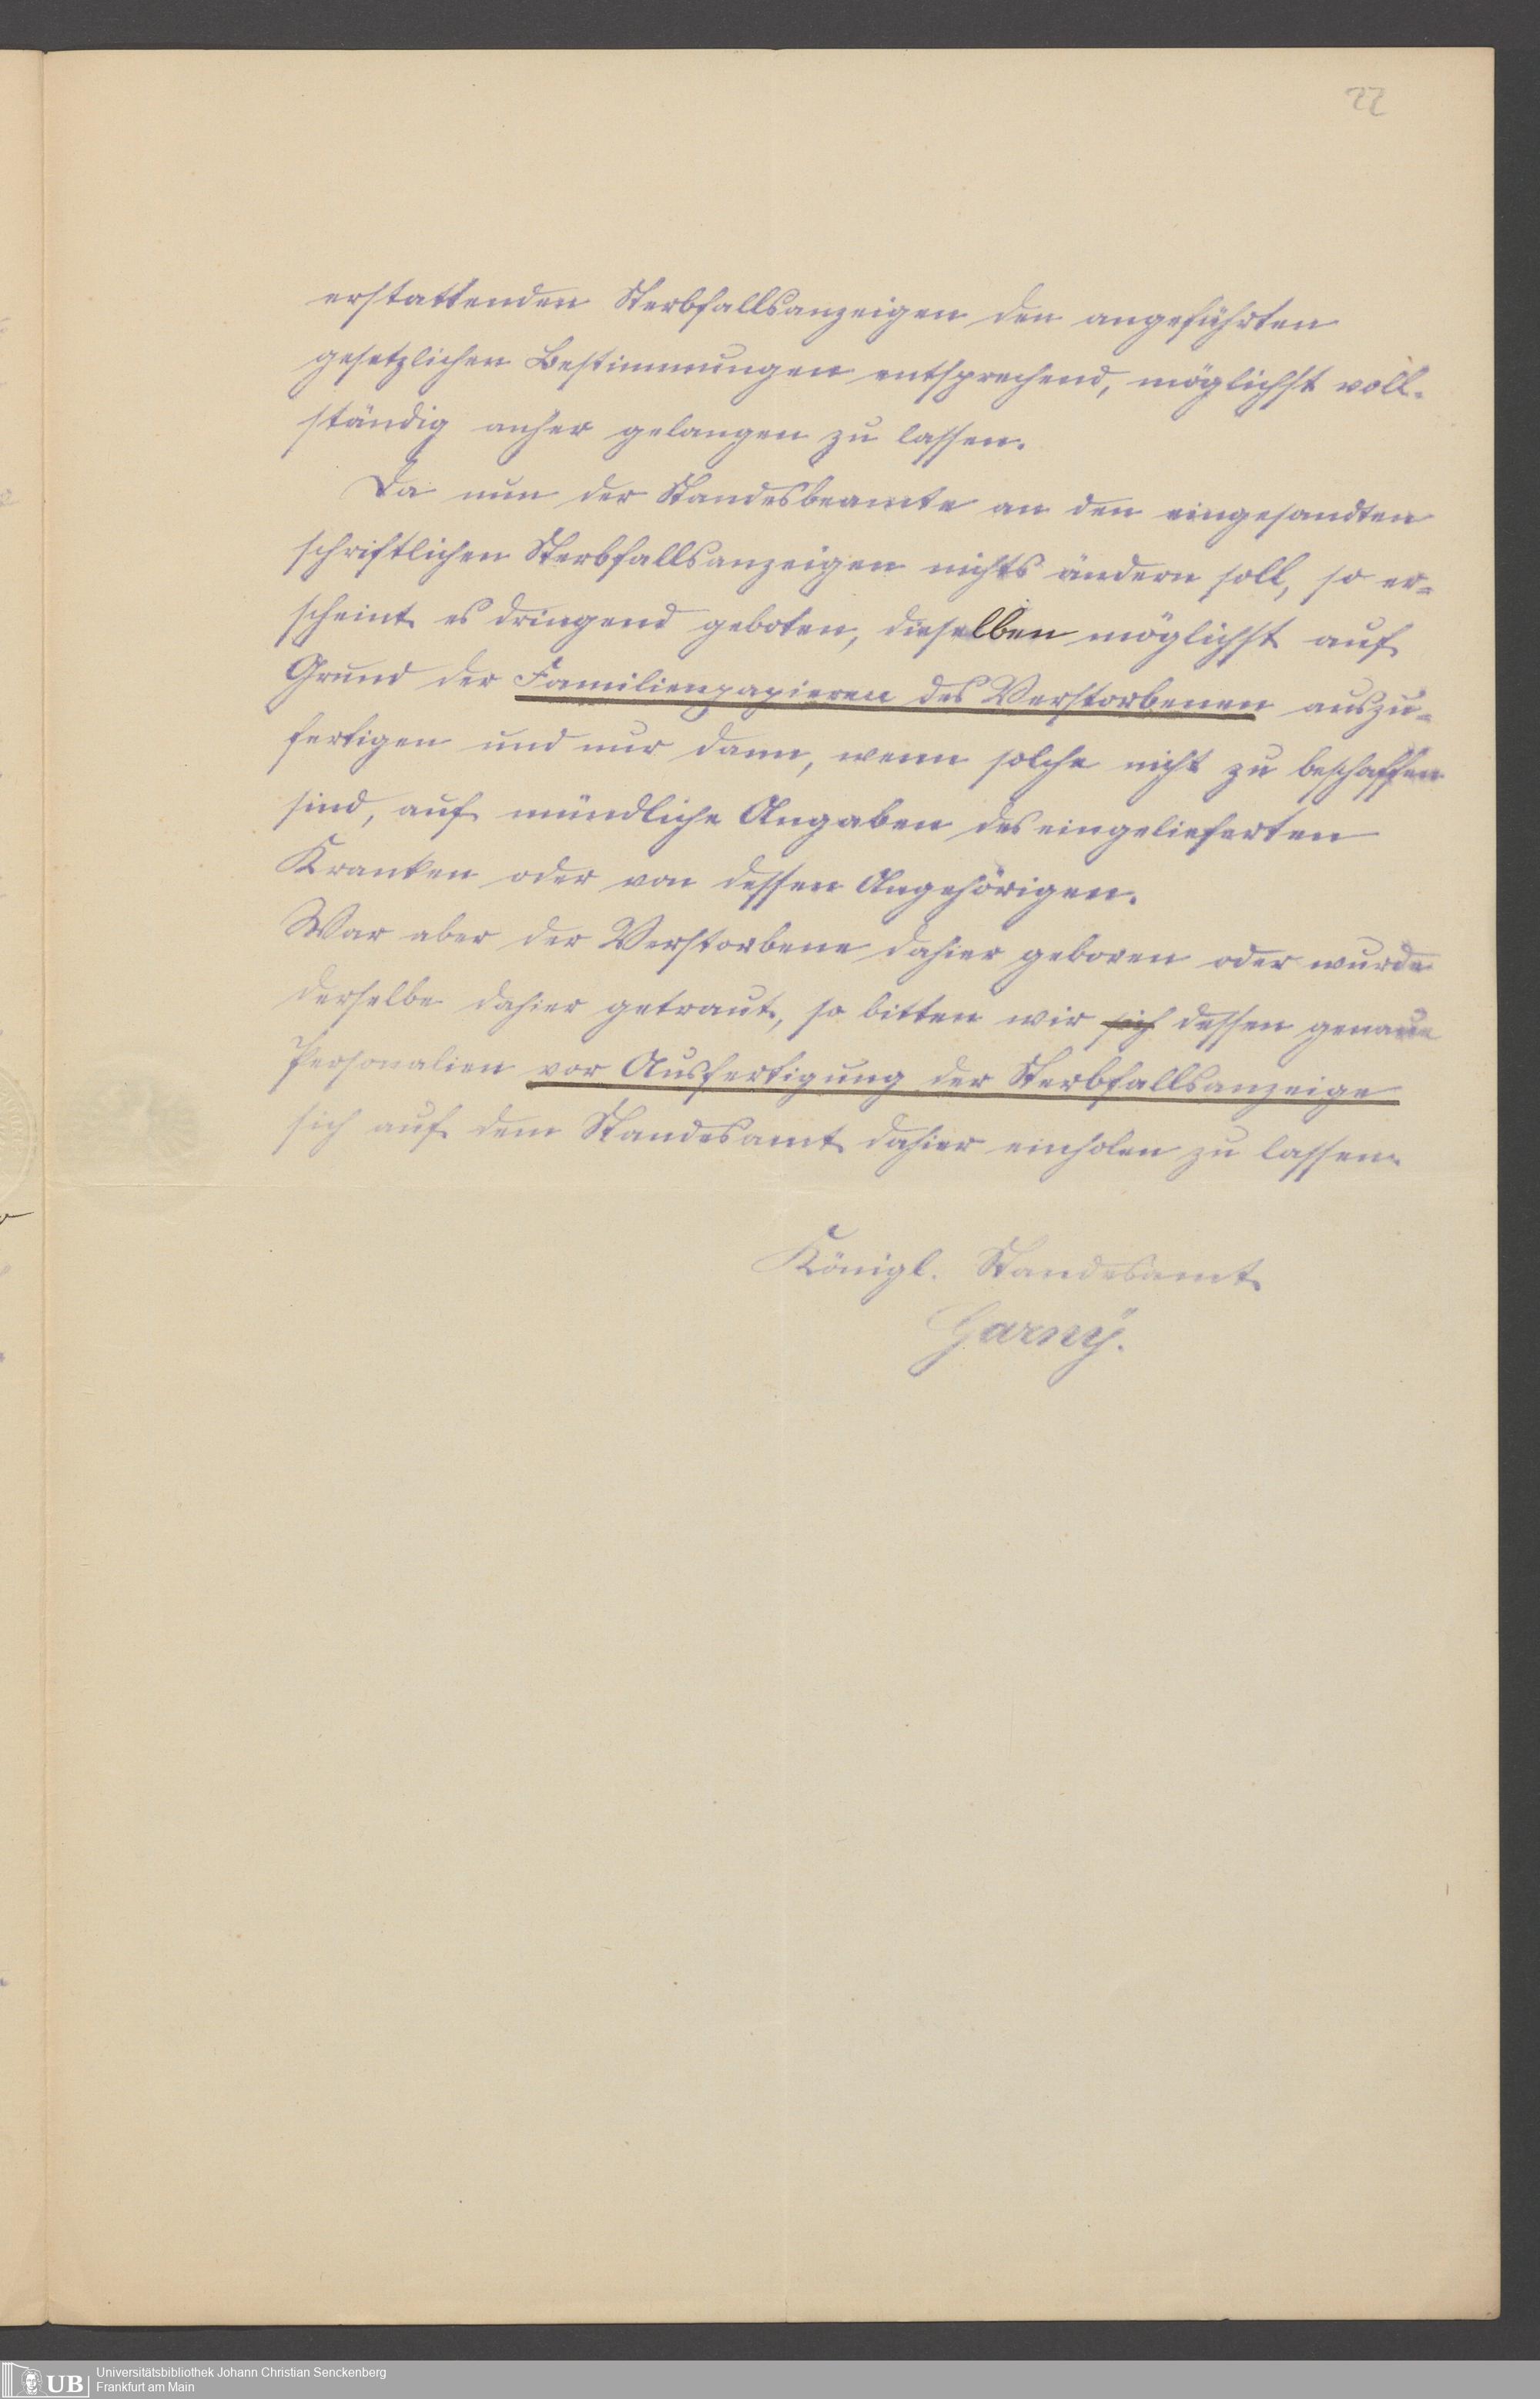 22
erstattenden Sterbfallsanzeigen den angeführten
gesetzlichen Bestimmungen entsprechend, möglichst voll-
ständig anher gelangen zu lassen.
Da nun der Standesbeamte an den eingesandten
schriftlichen Sterbfallsanzeigen nichts ändern soll, so er-
scheint es dringend geboten, dieselben möglichst auf
Grund der Familienpapieren des Verstorbenen auszu-
fertigen und nur dann, wenn solche nicht zu beschaffen
sind, auf mündliche Angaben des eingelieferten
Kranken oder von dessen Angehörigen.
War aber der Verstorbene dahier geboren oder wurde
derselbe dahier getraut, so bitten wir sich dessen genaue
Personalien vor Ausfertigung der Sterbfallsanzeige
sich auf dem Standesamt dahier einholen zu lassen.
Königl. Standesamt
Garny.
UB
Universitätsbibliothek Johann Christian Senckenberg
Frankfurt am Main